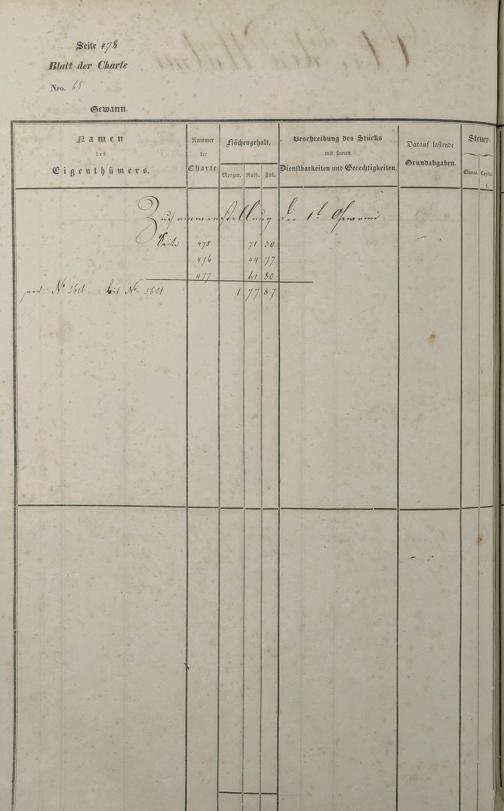 Seite 478
Blatt der Charte
Nro. 65
Gewann.
Namen des Eigenthümers.
Nummer der Charte
Flächengehalt.
Morgen. Ruth. Fuß.
Beschreibung des Stücks mit seinen Dienstbarkeiten und Gerechtigkeiten.
Darauf lastende Grundabgaben.
Steuer-
Classe. Capital
Zusammenstellung der 1t Gewann
Seite 475 71 30
476 44 77
477 61 80
bis No 1 77 87